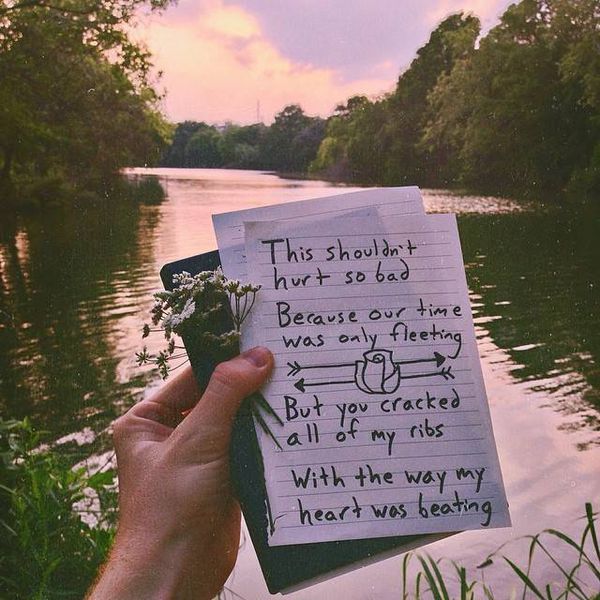 This shouldn't
hurt so bad
Because our time
was only fleeting
But you cracked
all of my ribs
With the way my
heart was beating